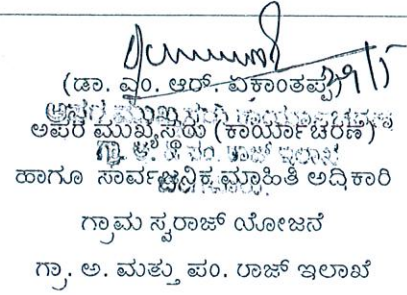 (ಡಾ. ಎಂ. ಆರ್. ಏಕಾಂತಪ್ಪ)
ಅಪರ ಮುಖ್ಯಸ್ಥರು (ಕಾರ್ಯಾಚರಣೆ)
ಹಾಗೂ ಸಾರ್ವಜನಿಕ ಮಾಹಿತಿ ಅಧಿಕಾರಿ
ಗ್ರಾಮ ಸ್ವರಾಜ್ ಯೋಜನೆ
ಗ್ರಾ. ಅ. ಮತ್ತು ಪಂ. ರಾಜ್ ಇಲಾಖೆ